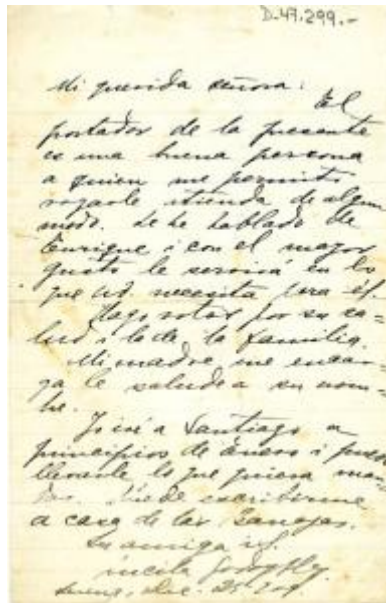 D-47.299.-
Mi querida señora:
El
portador de la presente
es una buena persona
a quien me permito
rogarle atienda de algún
modo. Le he hablado de
Enrique i con el mayor
gusto le servirá en lo
que Ud. necesita para él.
Hago votos por su sa-
lud i la de la familia.
Mi madre me encar-
ga le salude a su nom-
bre.
Yo iré a Santiago a
principios de enero i puedo
llevarle lo que quiera man-
dar. Puede escribirme
a casa de las
Su amiga
Dic. 25